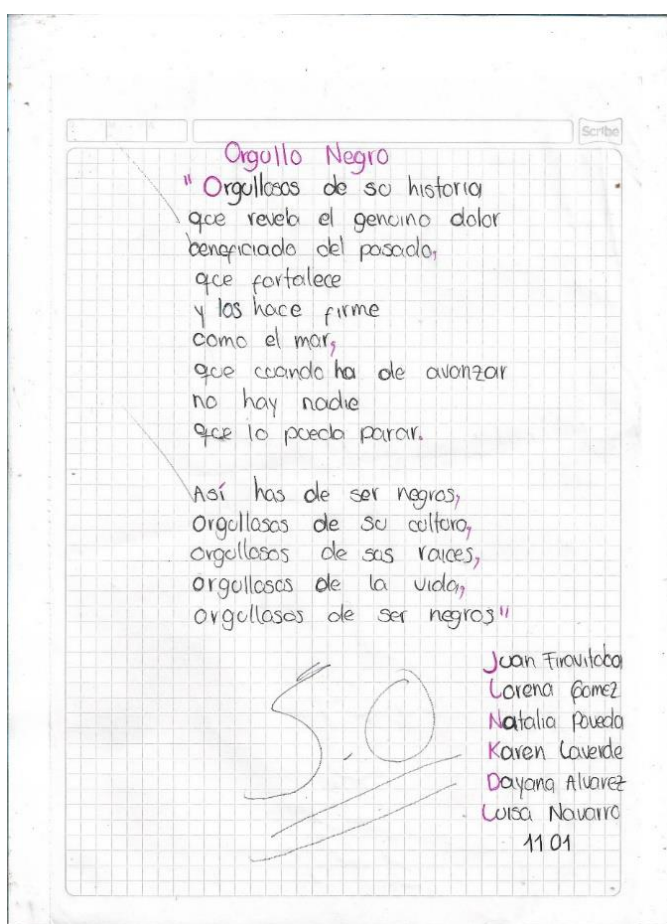 Scribe
Orgullo Negro
"Orgullosos de su historia
que revela el genuino dolor
beneficiado del pasado,
que fortalece
y los hace firme
como el mar,
que cuando ha de avanzar
no hay nadie
que lo pueda parar.
Así has de ser negros,
Orgullosos de su cultura,
orgullosos de sus raices,
orgullosos de la vida,
orgullosos de ser negros"
5.0
Juan Firavitoba
Lorena Gomez
Natalia Poveda
Karen Laverde
Dayana Alvarez
Luisa Navarro
1101